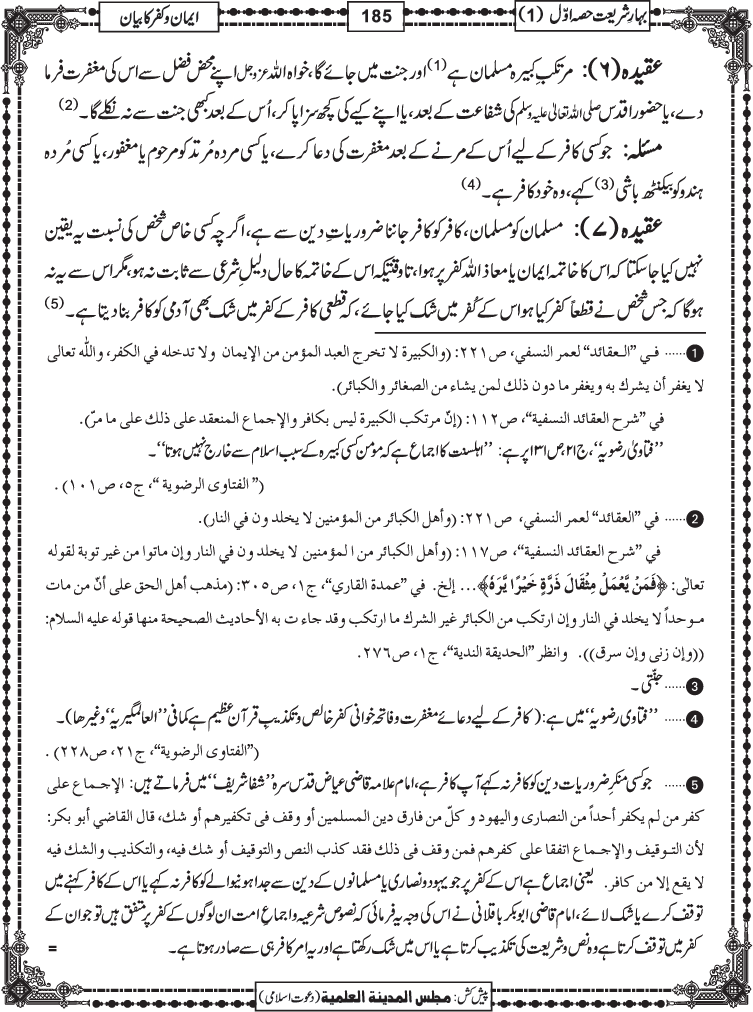 بہارِ شریعت حصہ اوّل (1)
185
ایمان و کفر کا بیان
عقیدہ (۶): مرتکبِ کبیرہ مسلمان ہے (1) اور جنت میں جائے گا، خواہ اللہ عزوجل اپنے محض فضل سے اس کی مغفرت فرما
دے، یا حضور اقدس صلی اللہ تعالیٰ علیہ وسلم کی شفاعت کے بعد، یا اپنے کیے کی کچھ سزا پا کر، اُس کے بعد کبھی جنت سے نہ نکلے گا۔ (2)
مسئلہ: جو کسی کافر کے لیے اُس کے مرنے کے بعد مغفرت کی دعا کرے، یا کسی مردہ مُرتد کو مرحوم یا مغفور، یا کسی مُردہ
ہندو کو بیکنٹھ باشی (3) کہے، وہ خود کافر ہے۔ (4)
عقیدہ (۷): مسلمان کو مسلمان، کافر کو کافر جاننا ضروریاتِ دین سے ہے، اگرچہ کسی خاص شخص کی نسبت یہ یقین
نہیں کیا جا سکتا کہ اس کا خاتمہ ایمان یا معاذ اللہ کفر پر ہوا، تاوقتیکہ اس کے خاتمہ کا حال دلیلِ شرعی سے ثابت نہ ہو، مگر اس سے یہ نہ
ہوگا کہ جس شخص نے قطعاً کفر کیا ہو اس کے کُفر میں شک کیا جائے، کہ قطعی کافر کے کفر میں شک بھی آدمی کو کافر بنا دیتا ہے۔ (5)
1 ...... في ”العقائد“ لعمر النسفي، ص۲۲۱: (والكبيرة لا تخرج العبد المؤمن من الإيمان ولا تدخله في الكفر، والله تعالى
لا يغفر أن يشرك به ويغفر ما دون ذلك لمن يشاء من الصغائر والكبائر).
في ”شرح العقائد النسفية“، ص۱۱۲: (إنّ مرتكب الكبيرة ليس بكافر والإجماع المنعقد على ذلك على ما مرّ).
”فتاویٰ رضویہ“، ج۲۱، ص۱۳۱ پر ہے: ”اہلسنت کا اجماع ہے کہ مؤمن کسی کبیرہ کے سبب اسلام سے خارج نہیں ہوتا“۔
(”الفتاوى الرضوية“، ج۵، ص۱۰۱).
2 ...... في ”العقائد“ لعمر النسفي، ص۲۲۱: (وأهل الكبائر من المؤمنين لا يخلد ون في النار).
في ”شرح العقائد النسفية“، ص۱۱۷: (وأهل الكبائر من ا لمؤمنين لا يخلد ون في النار وإن ماتوا من غير توبة لقوله
تعالى: ﴿فَمَنْ يَّعْمَلْ مِثْقَالَ ذَرَّةٍ خَيْرًا يَّرَهٗ﴾... إلخ. في ”عمدة القاري“، ج۱، ص۳۰۵: (مذهب أهل الحق على أنّ من مات
موحداً لا يخلد في النار وإن ارتكب من الكبائر غير الشرك ما ارتكب وقد جاء ت به الأحاديث الصحيحة منها قوله عليه السلام:
((وإن زنى وإن سرق)). وانظر ”الحديقة الندية“، ج۱، ص۲۷۶.
3 ...... جنّتی۔
4 ...... ”فتاوی رضویہ“ میں ہے: (کافر کے لیے دعائے مغفرت و فاتحہ خوانی کفر خالص و تکذیب قرآن عظیم ہے کما فی ”العالمگیریہ“ وغیرھا)۔
(”الفتاوى الرضوية“، ج۲۱، ص۲۲۸).
5 ...... جو کسی منکرِ ضروریات دین کو کافر نہ کہے آپ کافر ہے، امام علامہ قاضی عیاض قدس سرہ ”شفا شریف“ میں فرماتے ہیں: الإجماع على
كفر من لم يكفر أحداً من النصارى واليهود و كلّ من فارق دين المسلمين أو وقف فى تكفيرهم أو شك، قال القاضي أبو بكر:
لأن التوقيف والإجماع اتفقا على كفرهم فمن وقف فى ذلك فقد كذب النص والتوقيف أو شك فيه، والتكذيب والشك فيه
لا يقع إلا من كافر. یعنی اجماع ہے اس کے کفر پر جو یہود و نصاری یا مسلمانوں کے دین سے جدا ہونیوالے کو کافر نہ کہے یا اس کے کافر کہنے میں
توقف کرے یا شک لائے، امام قاضی ابوبکر باقلانی نے اس کی وجہ یہ فرمائی کہ نصوص شرعیہ و اجماعِ امت ان لوگوں کے کفر پر متفق ہیں تو جو ان کے
کفر میں توقف کرتا ہے وہ نص و شریعت کی تکذیب کرتا ہے یا اس میں شک رکھتا ہے اور یہ امر کافر ہی سے صادر ہوتا ہے۔ =
پیش کش: مجلس المدینة العلمیة (دعوت اسلامی)